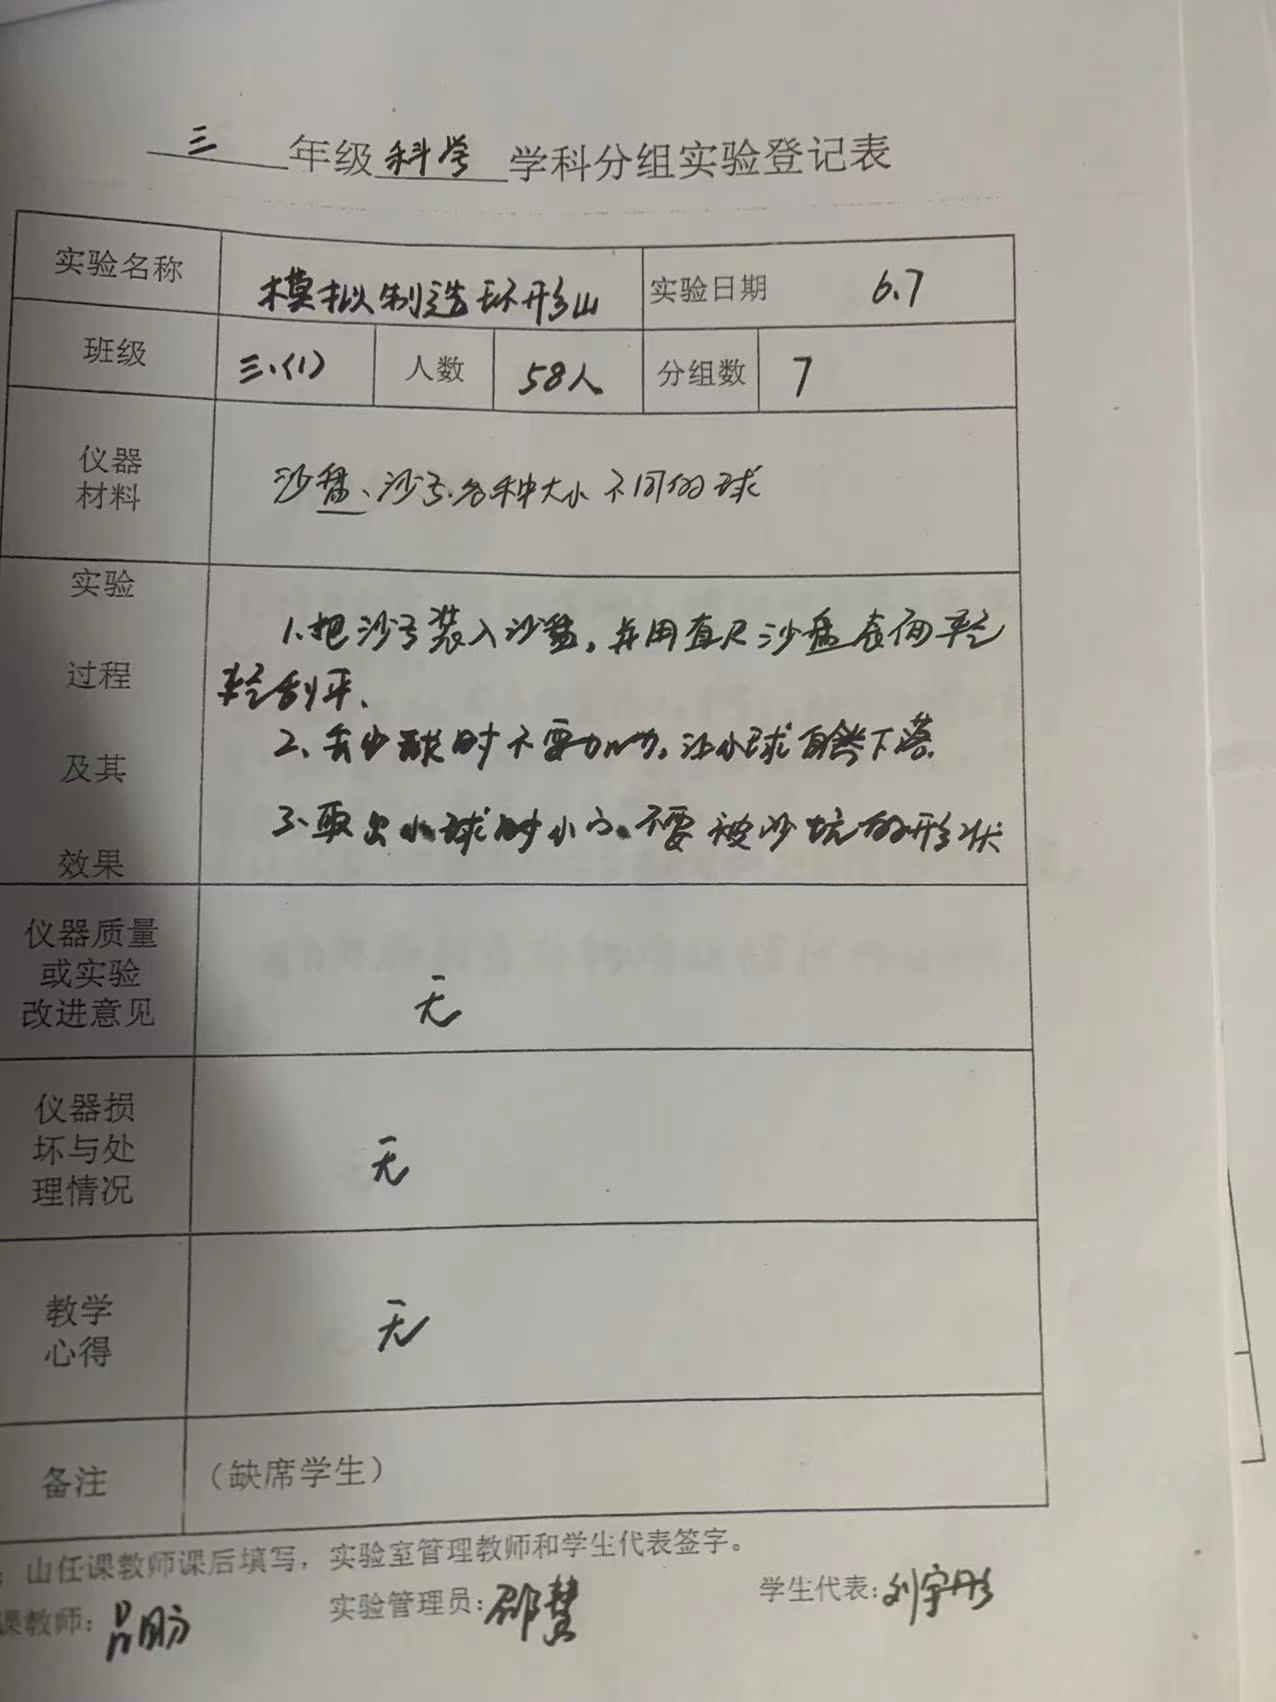 三 年级 科学 学科分组实验登记表
实验名称 模拟制造环形山 实验日期 6.7
班级 三.(1) 人数 58人 分组数 7
仪器
材料
沙盘、沙子.各种大小不同的球
实验
过程
及其
效果
1.把沙子装入沙盘,并用直尺沙盘表面轻
轻刮平、
2、 时不要加力,让小球自然下落.
3.取出小球时小心.不要被沙坑的形状
仪器质量
或实验
改进意见
无
仪器损
坏与处
理情况
无
教学
心得
无
备注 (缺席学生)
: 山任课教师课后填写，实验室管理教师和学生代表签字。
课教师: 实验管理员: 邵慧 学生代表: 刘宇彤